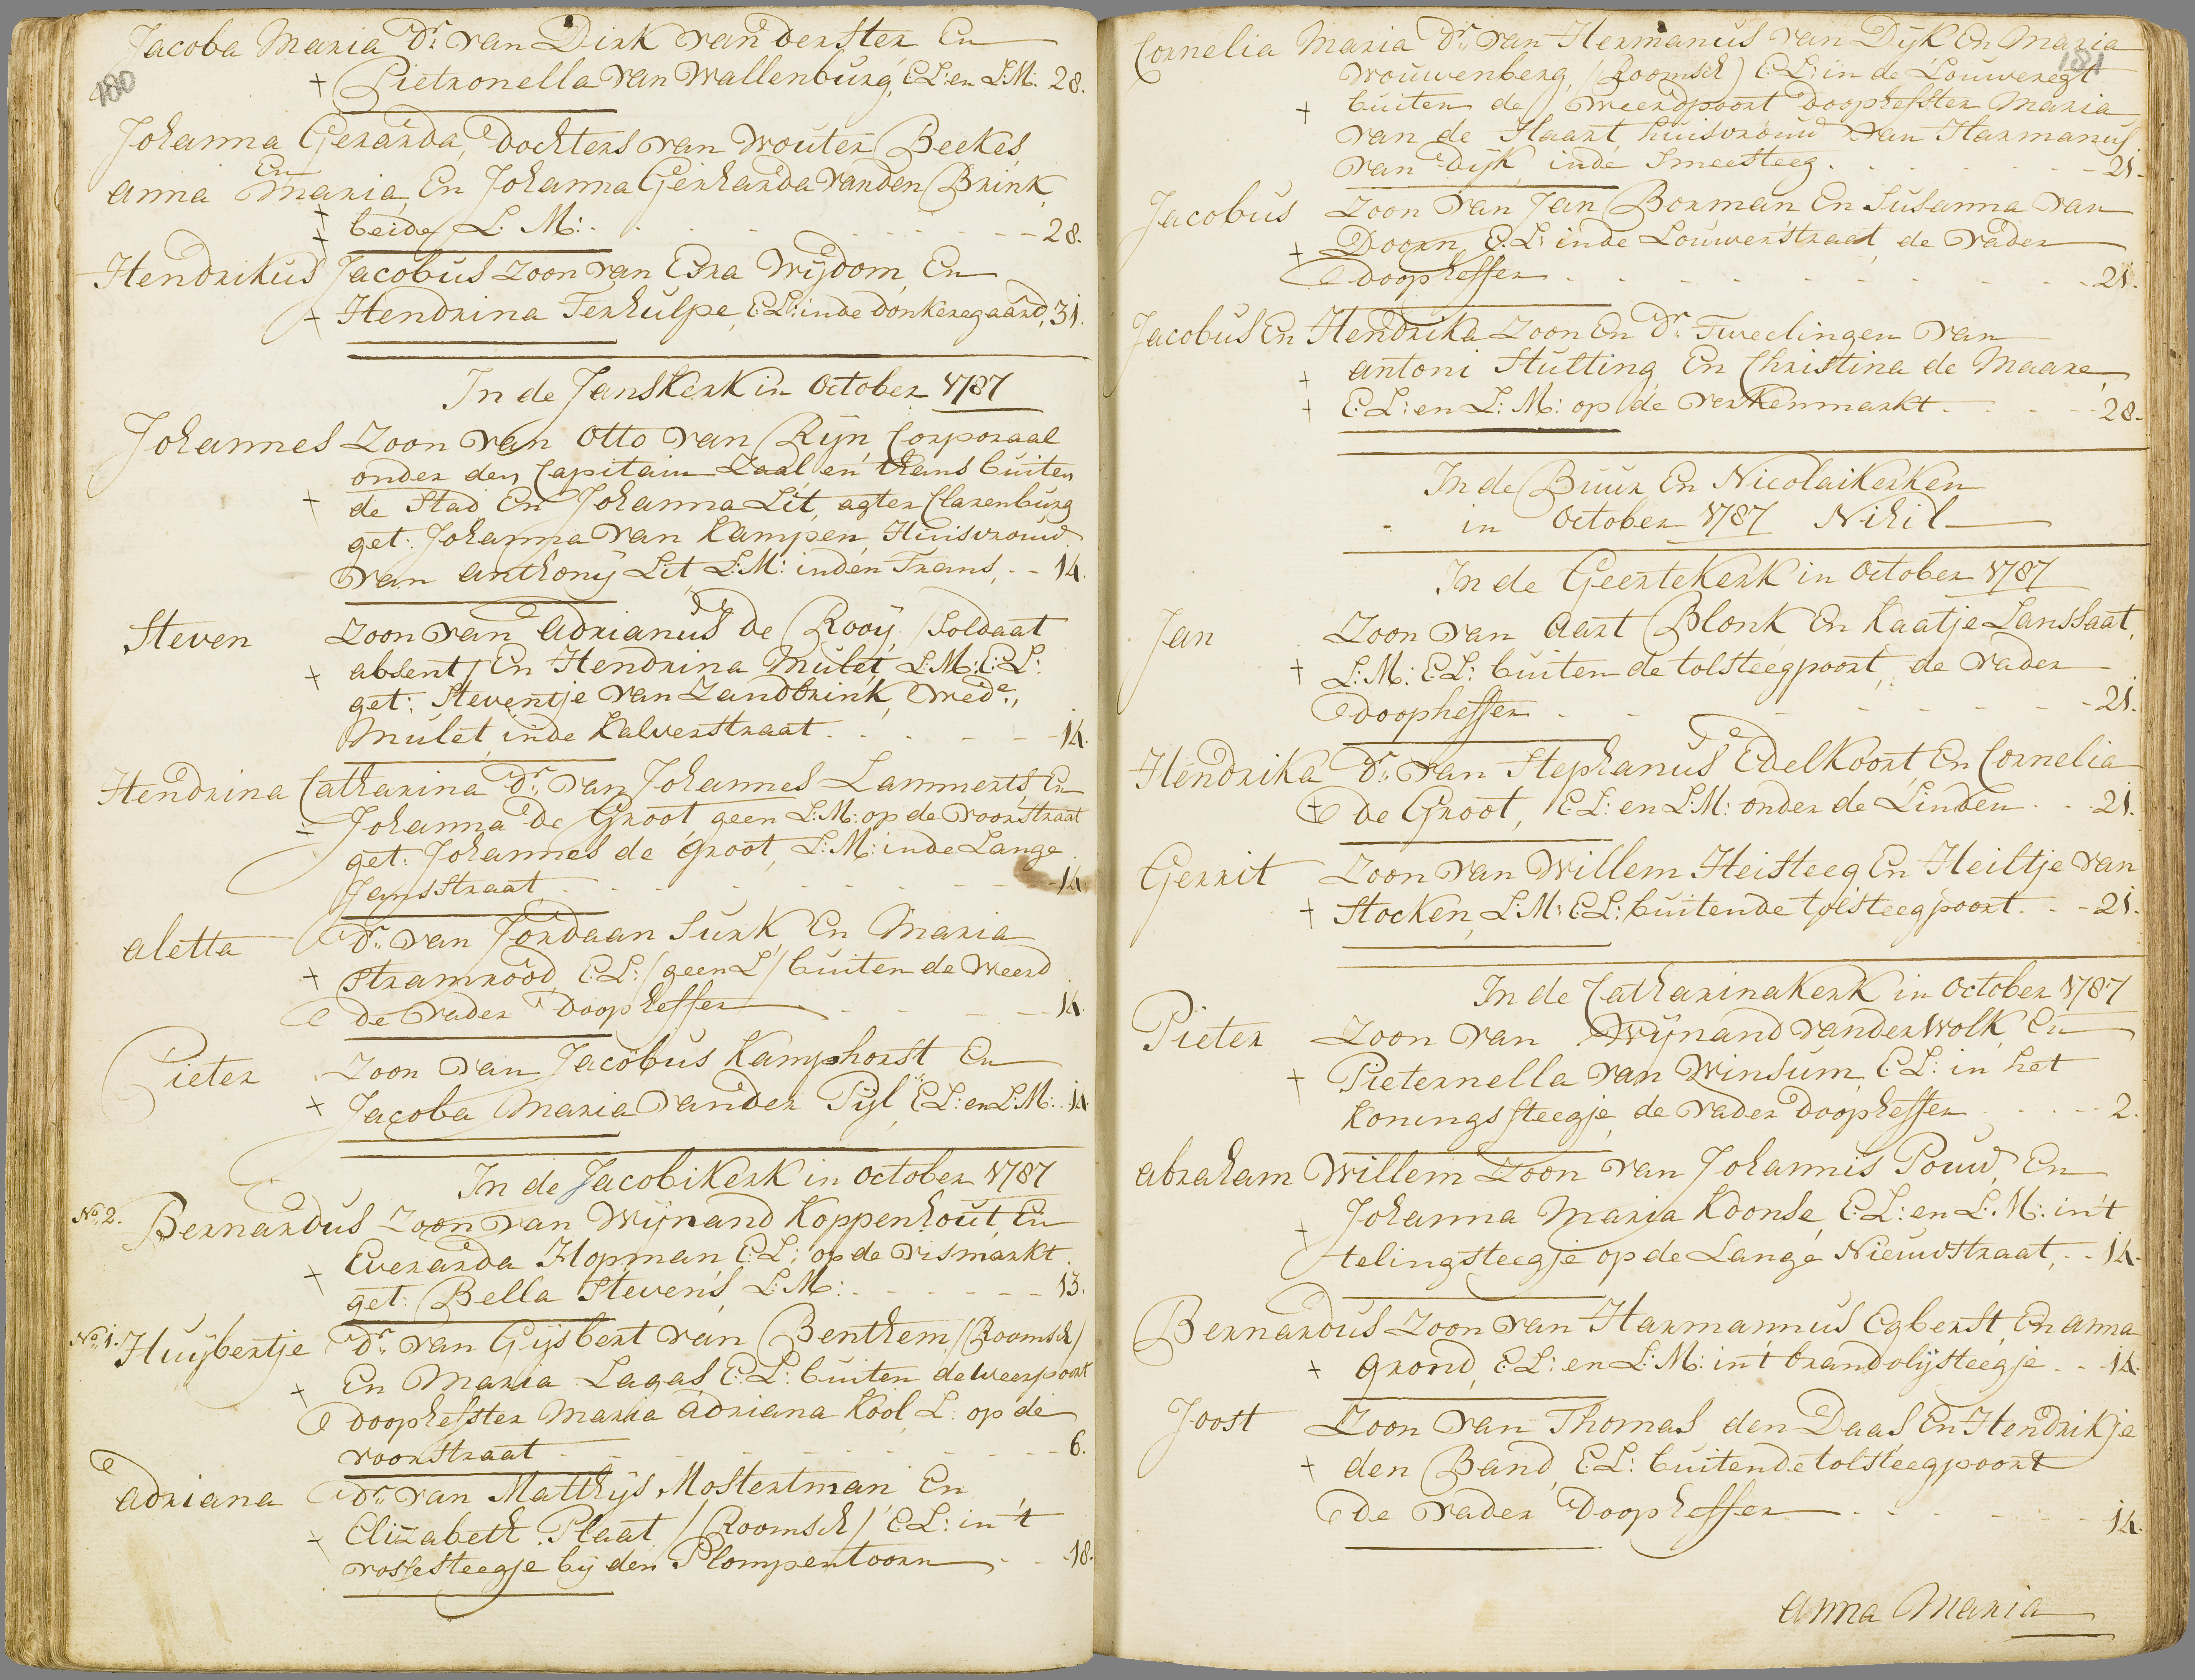 Jacoba Maria Dr. van Dirk van der Ster En
180
+ Pietronella van Wallenburg, E.L: en L:M: 28.
Johanna Gerarda, Dochters van Wouter Beekes
En
anna Maria, En Johanna Gerharda vanden Brink,
+ + beide L. M: - - - 28.
Hendrikus Jacobus Zoon van Ezra Wijdom, En
+ Hendrina Terhulpe, E:L: inde Donkeregaard, 31.
In de Janskerk in October 1787
Johannes Zoon van Otto van Rijn Corporaal
onder den Capitain Zaal en thans buiten
+ de Stad En Johanna Lit, agter Clarenburg
get: Johanna van Kampen, Huisvrouw
van Anthony Lit, L:M: inden Trans, - - 14.
Steven Zoon van Adrianus de Rooij /Soldaat
+ absent/ En Hendrina Mulet, L:M: E:L:
get: Steventje van Zandbrink, Wede.,
Mulet, inde Kalverstraat. - - - 14.
Hendrina Catharina Dr. van Johannes Lammerts, En
Johanna De Groot geen L:M: op de voorstraat
get: Johannes de Groot, L:M: inde Lange
Jansstraat - - - 14.
aletta Dr. van Jordaan Surk En Maria
+ Stramrood, E:L: /geen L/ buiten de Weerd
de vader Doopheffer - - - 14.
Pieter Zoon van Jacobus Kamphorst En
+ Jacoba Maria vander Pijl, E:L: en L:M: 14
In de Jacobikerk in October 1787
No. 2. Bernardus Zoon van Wijnand Koppenhout, En
+ Everarda Hopman, E:L: op de vismarkt
get: Bella Stevens, L:M: - - - 13.
No. 1. Huijbertje Dr. van Gijsbert van Benthem /Roomsch/
+ En Maria Lagas E:L: buiten de weerpoort
doophefster Maria Adriana Kool L: op de
voorstraat - - - 6.
Adriana Dr. van Matthijs Mostertman En
+ Elizabeth Plaat /Roomsch/ E:L: in 't
rossesteegje bij den Plompentoorn - - 18.
Cornelia Maria Dr. van Hermanus van Dijk En Maria
181
Wouwenberg, /Roomsch/ E:L: in de Louweregt
+ buiten de Weerdpoort doophefster Maria
van de Haart, huisvrouw van Harmanus
van Dijk, inde Smeesteeg. - - - 21.
Jacobus Zoon van Jan Borman En Susanna van
+ Doorn, E:L: inde Louwerstraat, de vader
doopheffer - - - 21.
Jacobus En Hendrika Zoon En Dr. Tweelingen van
+ antoni Stulting En Christina de Maare,
+ E:L: en L:M: op de verkenmarkt. - - - 28.
In de Buur En Nicolaikerken
in October 1787 Nihil
In de Geertekerk in October 1787
Jan Zoon van Aart Blonk En Kaatje Lanssaat,
+ L:M: E:L: buiten de tolsteegpoort, de vader
doopheffer - - - 21.
Hendrika Dr. van Stephanus Edelkoort, En Cornelia
+ de Groot, E:L: en L:M: onder de Linden. - - 21.
Gerrit Zoon van Willem Heisteeg En Heiltje van
+ Stocken, L:M: E:L: buiten de tolsteegpoort. - - 21.
In de Catharinakerk in October 1787
Pieter Zoon van Wijnand vander Wolk, En
+ Pieternella van Winsum, E:L: in het
Konings steegje, de vader doopheffer - - - 2.
abraham Willem Zoon van Johannis Pouw, En
+ Johanna Maria Koonse, E:L: en L:M: in't
telingsteegje op de Lange Nieuwstraat, - - 14.
Bernardus Zoon van Harmannus Egberst, En anna
+ Grond, E:L: en L:M: in't brandolijsteegje - - 14.
Joost Zoon van Thomas den Daas En Hendrikje
+ den Band, E:L: buiten de tolsteegpoort
de vader Doopheffer - - - 14.
anna Maria